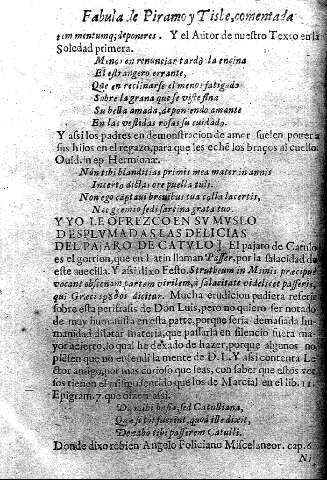 Fabula de Piramo y Tisbe, comentada
tem mentumq; deponeres. Y el Autor de nuestro Texto en la
Soledad primera.
Menos en renunciar tardò la encina
El estrangero errante,
Que en reclinarse el menos fatigado
Sobre la grana que se viste fina
Su bella amada, deponiendo amante
En las vestidas rosas su cuidado.
Y assi los padres en demonstracion de amor suelen poner a
sus hijos en el regazo, para que les echè los braços al cuello.
Ouid. in ep Hermionæ.
Non tibi blanditias primis mea mater in annis
Incerto dictas ore puella tuli.
Non ego captaui breuibus tua colla lacertis,
Nec gremio sedi sarcina grata tuo.
Y YO LE OFREZCO EN SU MUSLO
DESPLUMADAS LAS DELICIAS
DEL PAJARO DE CATULO]. El pajaro de Catulo
es el gorrion, que en Latin llaman Passer, por la salacidad de
este auecilla. Y assi dixo Festo. Strutheum in Mimis præcipuè
vocant obscœnam partem virilem, à salacitate videlicet passeris,
qui Græcè dicitur. Mucha erudicion pudiera referir
sobre esta perifrasis de Don Luis, pero no quiero ser notado
de muy humanista en esta parte, porque seria demasiada hu-
manidad dilatar materia, que passarla en silencio fuera ma-
yor acierto, lo qual he dexado de hazer, porque algunos no
piensen que no entendi la mente de D. L. Y assi contenta Le
ctor amigo, por mas curioso que seas, con saber que estos ver
sos tienen el mismo sentido que los de Marcial en el lib. 11.
Epigram. 7. que dizen assi.
Da mihi basia, sed Catulliana,
Quæ si tot fuerint, quod ille dixit,
Donabo tibi passerem Catulli.
Donde dixo tambien Angelo Policiano Miscelaneor. cap. 6.
Ni